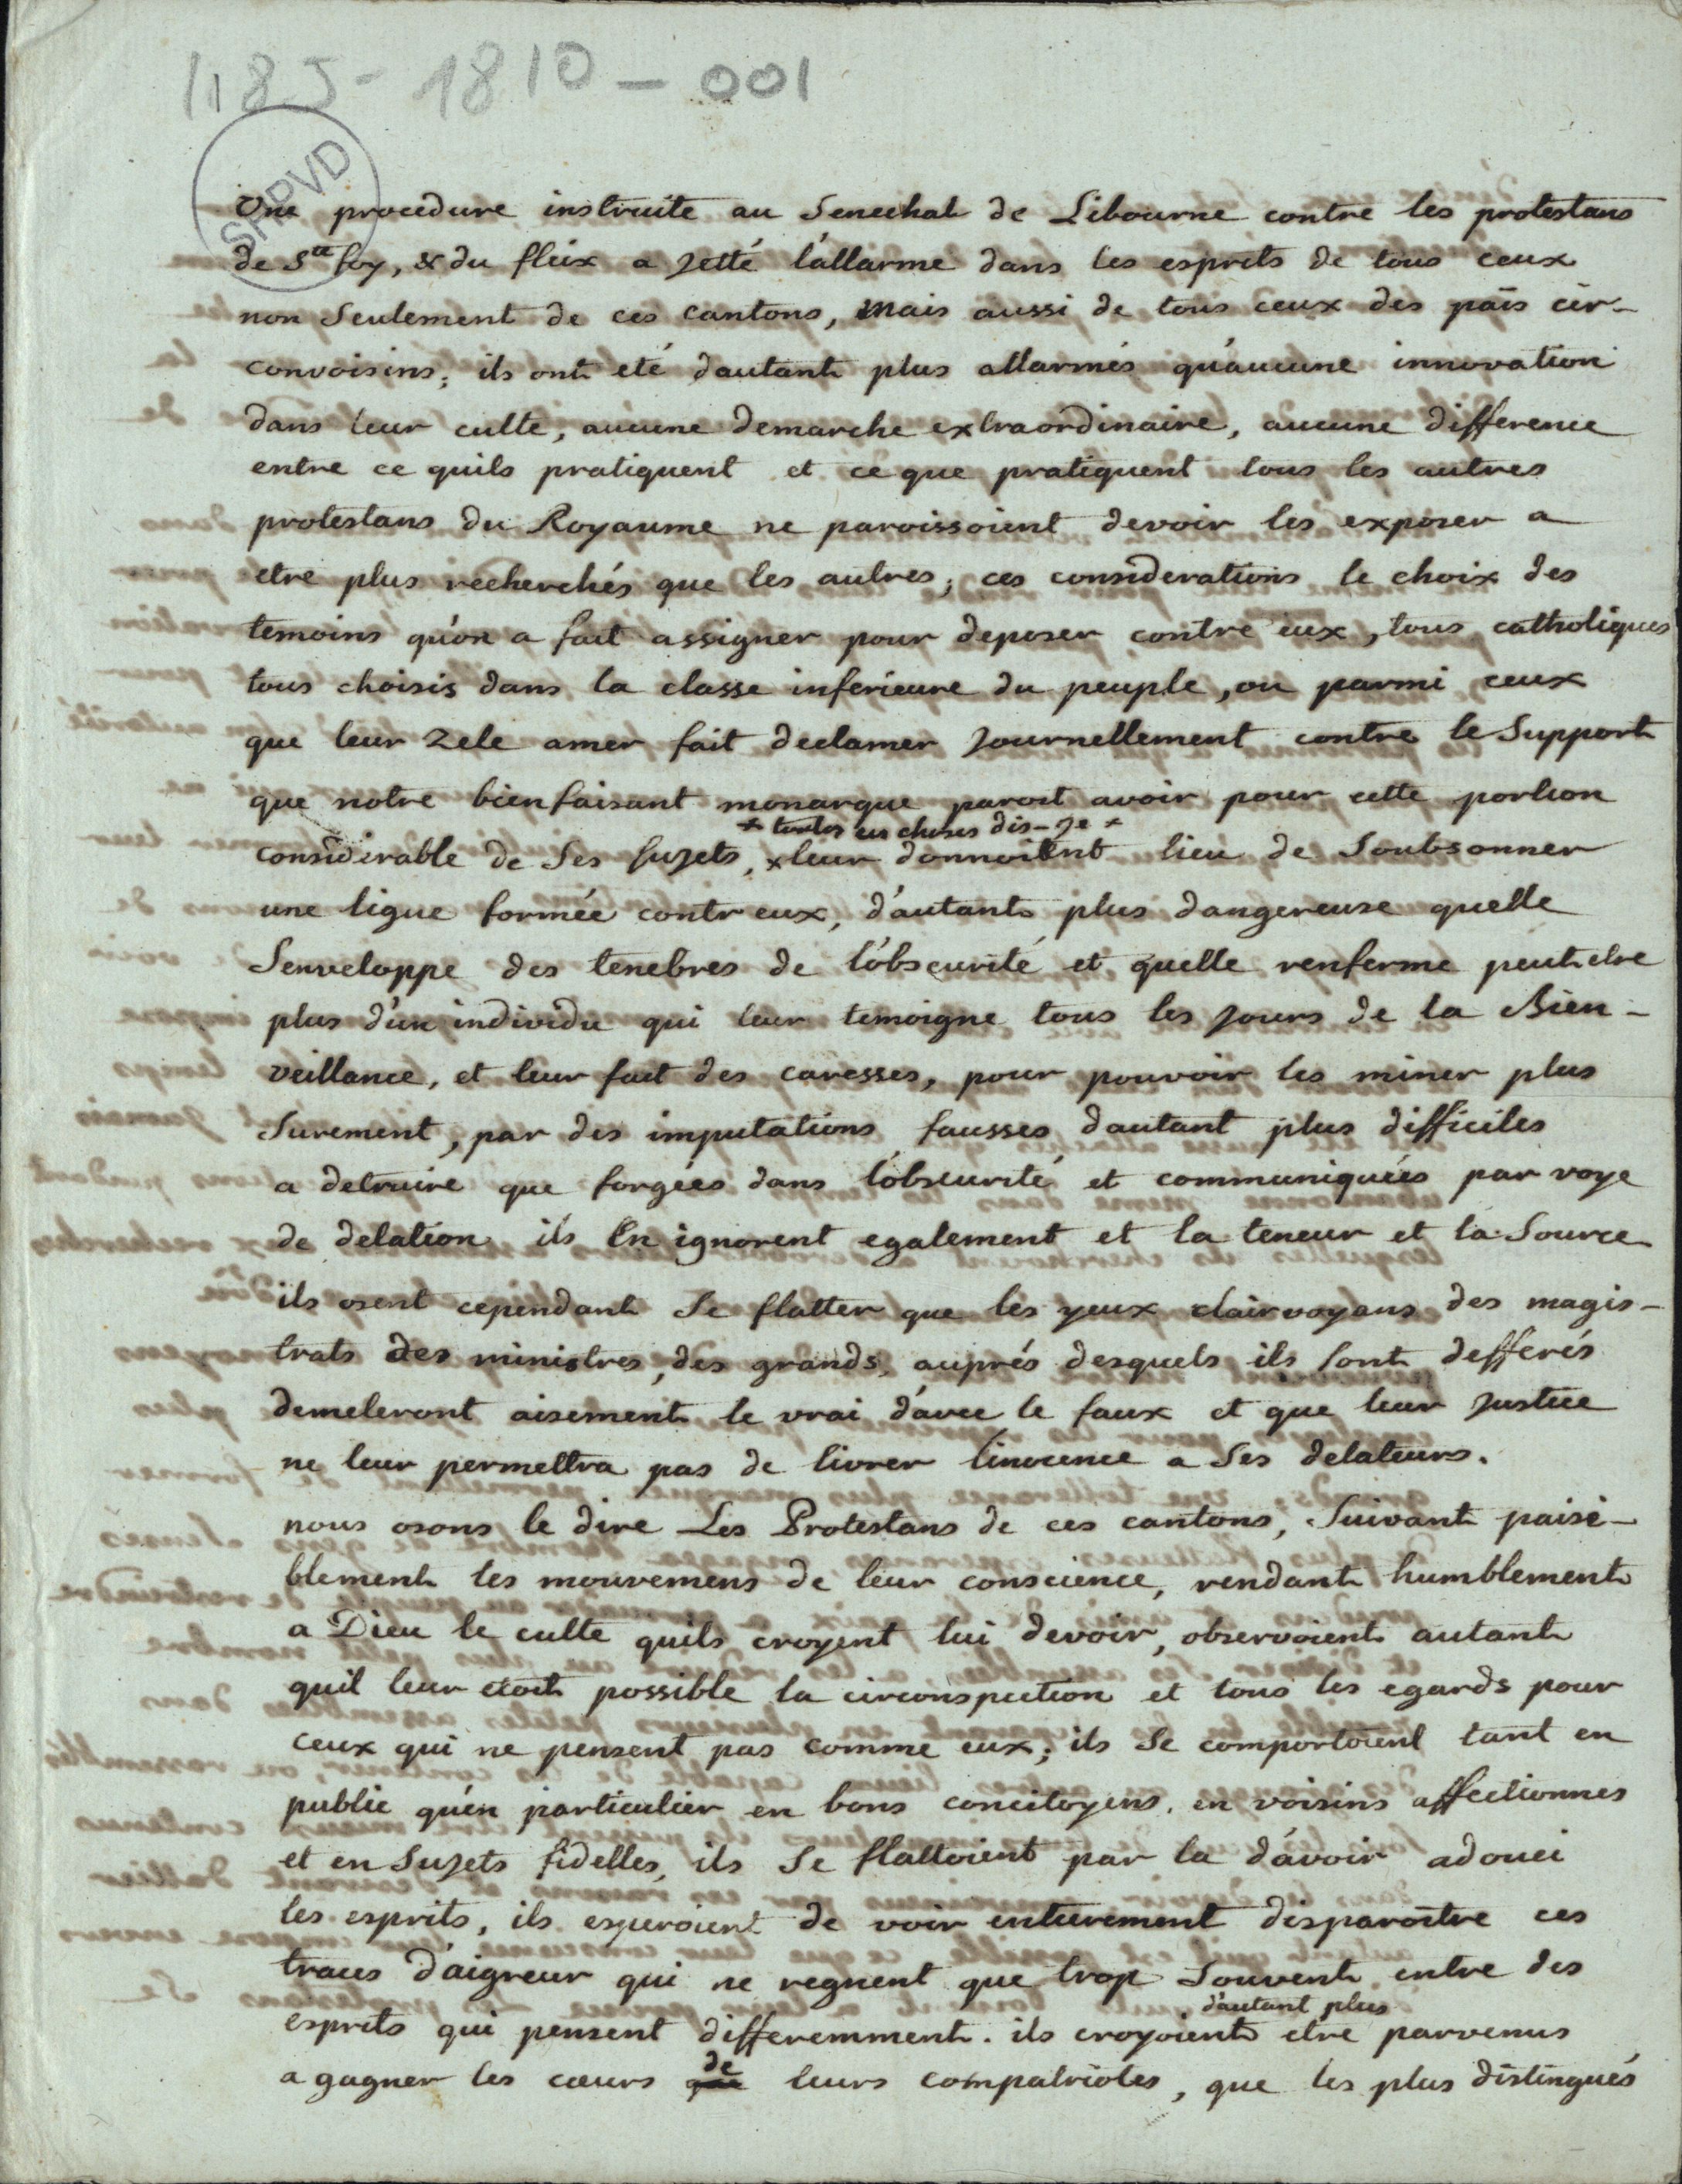 1185-1810-001
SHPVD
Une procedure instruite au Senechal de Libourne contre les protestans
de Ste foy, & du fleix a jetté l'allarme dans les esprits de tous ceux
non seulement de ces cantons, mais aussi de tous ceux des païs cir-
convoisins; ils ont eté dautant plus allarmés qu'aucune innovation
dans leur culte, aucune demarche extraordinaire, aucune difference
entre ce quils pratiquent et ce que pratiquent tous les autres
protestans du Royaume ne paroissoient devoir les exposer a
etre plus recherchés que les autres; ces considerations le choix des
temoins qu'on a fait assigner pour deposer contre eux, tous catholiques
tous choisis dans la classe inferieure du peuple, ou parmi ceux
que leur zele amer fait declamer journellement contre le support
que notre bienfaisant monarque paroit avoir pour cette portion
x toutes ces choses dis-je x
considerable de ses sujets, x leur donnoient lieu de soubsonner
une ligue formée contr eux, d'autant plus dangereuse quelle
senveloppe des tenebres de l'obscurité et quelle renferme peut etre
plus d'un individu qui leur temoigne tous les jours de la Bien-
veillance, et leur fait des caresses, pour pouvoir les miner plus
surement, par des imputations fausses dautant plus difficiles
a detruire que forgées dans l'obscurité et communiquées par voye
de delation ils en ignorent egalement et la teneur et la source
ils osent cependant se flatter que les yeux clairvoyans des magis-
trats des ministres, des grands, auprés desquels ils sont defferés
demeleront aisement le vrai d'avec le faux et que leur justice
ne leur permettra pas de livrer linocence a ses delateurs.
nous osons le dire Les Protestans de ces cantons, suivant paisi-
blement les mouvemens de leur conscience, rendant humblement
a Dieu le culte quils croyent lui devoir, observoient autant
quil leur etoit possible la circonspection et tous les egards pour
ceux qui ne pensent pas comme eux; ils se comportoient tant en
public qu'en particulier en bons concitoyens, en voisins affectionnes
et en sujets fidelles, ils se flattoient par la d'avoir adouci
les esprits, ils esperoient de voir entierement disparoitre ces
traces d'aigreur qui ne regnent que trop souvent entre des
d'autant plus
esprits qui pensent differemment. ils croyoient etre parvenus
de
a gagner les cœurs leurs compatriotes, que les plus distingués